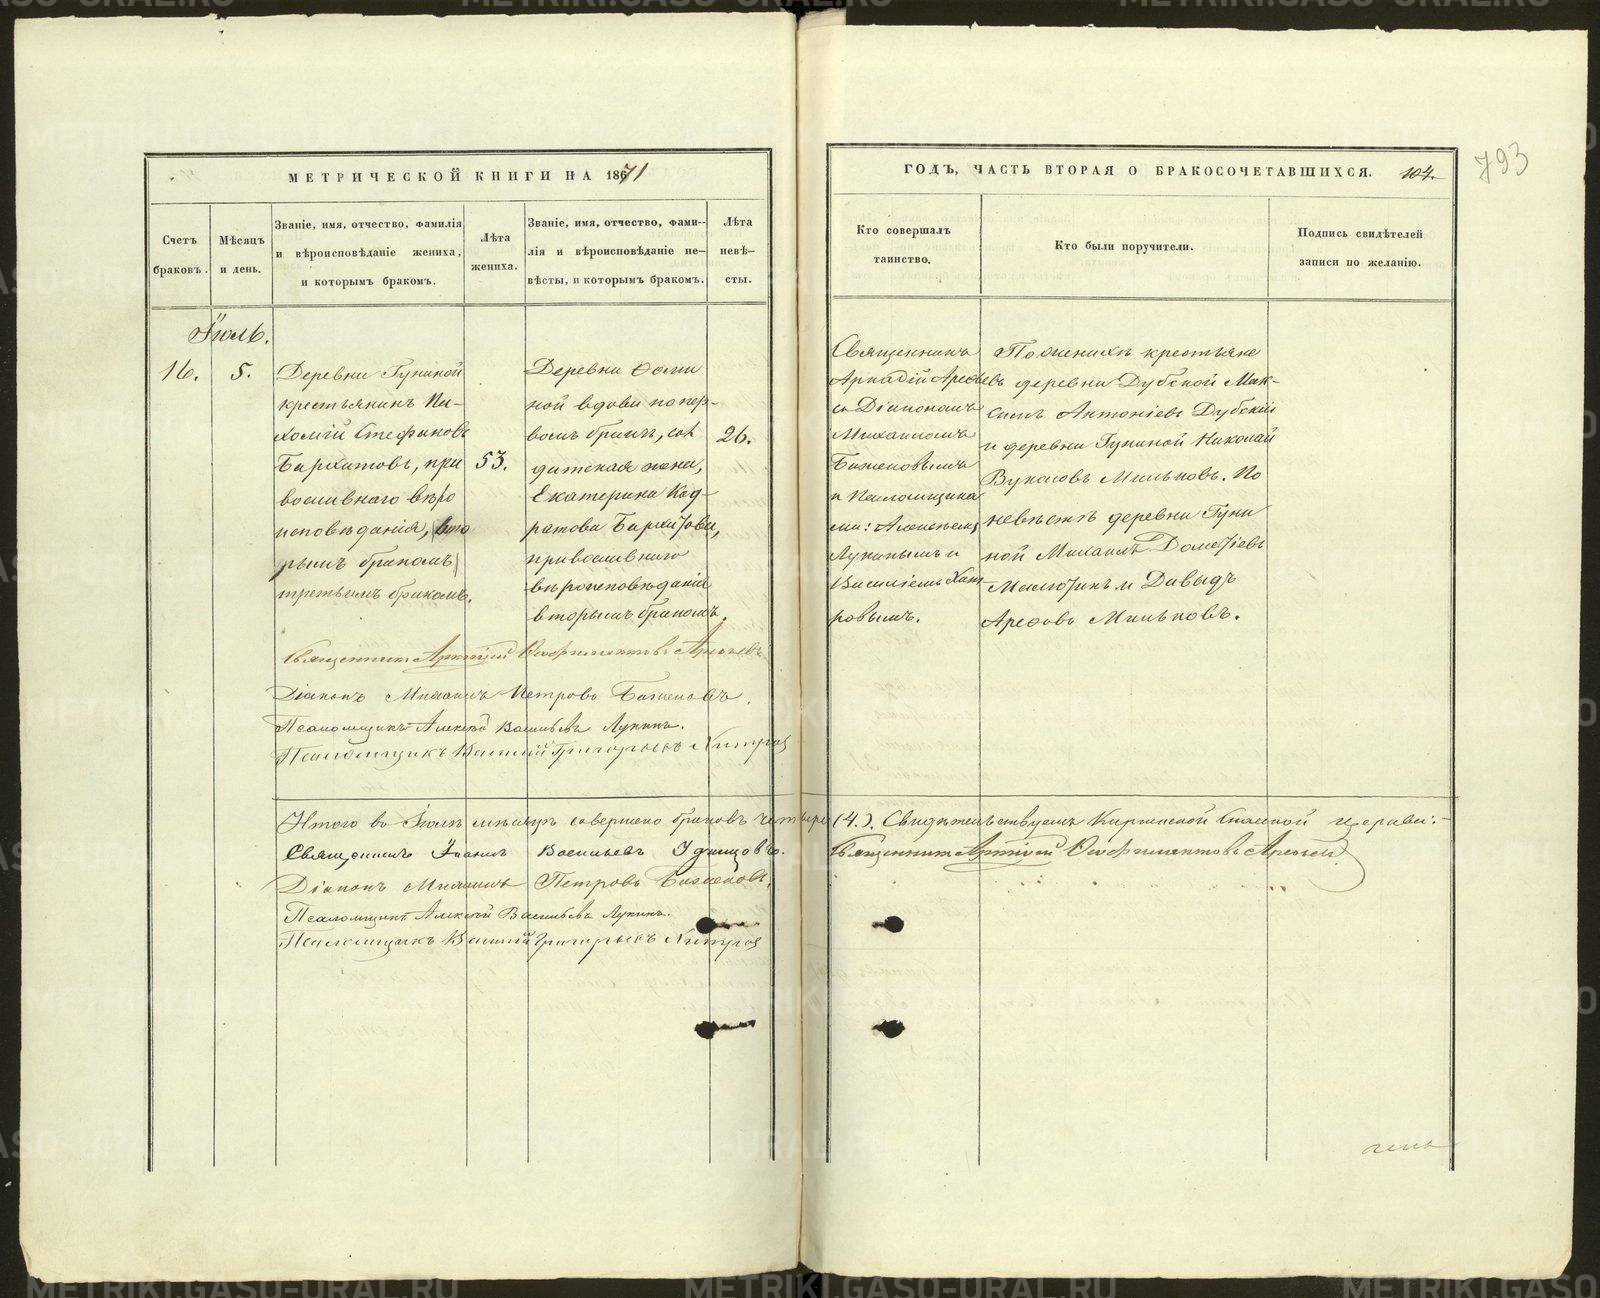 МЕТРИЧЕСКОЙ КНИГИ НА 1871
ГОДЪ, ЧАСТЬ ВТОРАЯ О БРАКОСОЧЕТАВШИХСЯ. 104.
793
Счетъ
браковъ.
Мѣсяцъ
и день.
Званіе, имя, отчество, фамилія
и вѣроисповѣданіе жениха,
и которымъ бракомъ.
Лѣта
жениха.
Званіе, имя, отчество, фами-
лія и вѣроисповѣданіе не-
вѣсты, и которымъ бракомъ.
Лѣта
невѣ-
сты.
Кто совершалъ
таинство.
Кто были поручители.
Подпись свидѣтелей
записи по желанію.
Іюль.
16.
5.
Деревни Гуниной
крестьянинъ Па-
хомій Стефановъ
Бархатовъ, пра
вославнаго вѣро
исповѣданія, вто
рымъ бракомъ
третьимъ бракомъ.
53.
Деревни Ѳоми
ной вдова по пер-
вомъ бракѣ, сол
датская жена,
Екатерина Код-
ратова Бархатова,
православнаго
вѣроисповѣданія
вторымъ бракомъ.
26.
Священникъ
Аркадій Арефьевъ
съ Діакономъ
Михаиломъ
Баженовымъ
и Псаломщика
ми: Алексѣемъ
Лукинымъ и
Василіемъ
ровымъ.
По женихѣ крестьяне
деревни Дубской Мак-
симъ Антоніевъ Дубскій
и деревни Гуниной Николай
Вуколовъ Мильковъ. По
невѣстѣ деревни Гуни
ной Михаилъ Дометіевъ
и Давыдъ
Арефовъ Мильковъ.
Священникъ Аркадій Ѳеофилактовъ Арефьевъ
Діаконъ Михаилъ Петровъ Баженовъ.
Псаломщикъ Алексѣй Васильевъ Лукинъ.
Псаломщикъ Василій Григорьевъ
Итого въ Іюлѣ мѣсяцѣ совершено браковъ четыре (4.). Свидѣтельствуемъ Киргинской Спасской церкви:
Священникъ Іоаннъ Васильевъ Удинцовъ.
Священникъ Аркадій Ѳеофилактовъ Арефьевъ
Діаконъ Михаилъ Петровъ Баженовъ.
Псаломщикъ Алексѣй Васильевъ Лукинъ.
Псаломщикъ Василій Григорьевъ
METRIKI.GASO-URAL.RU